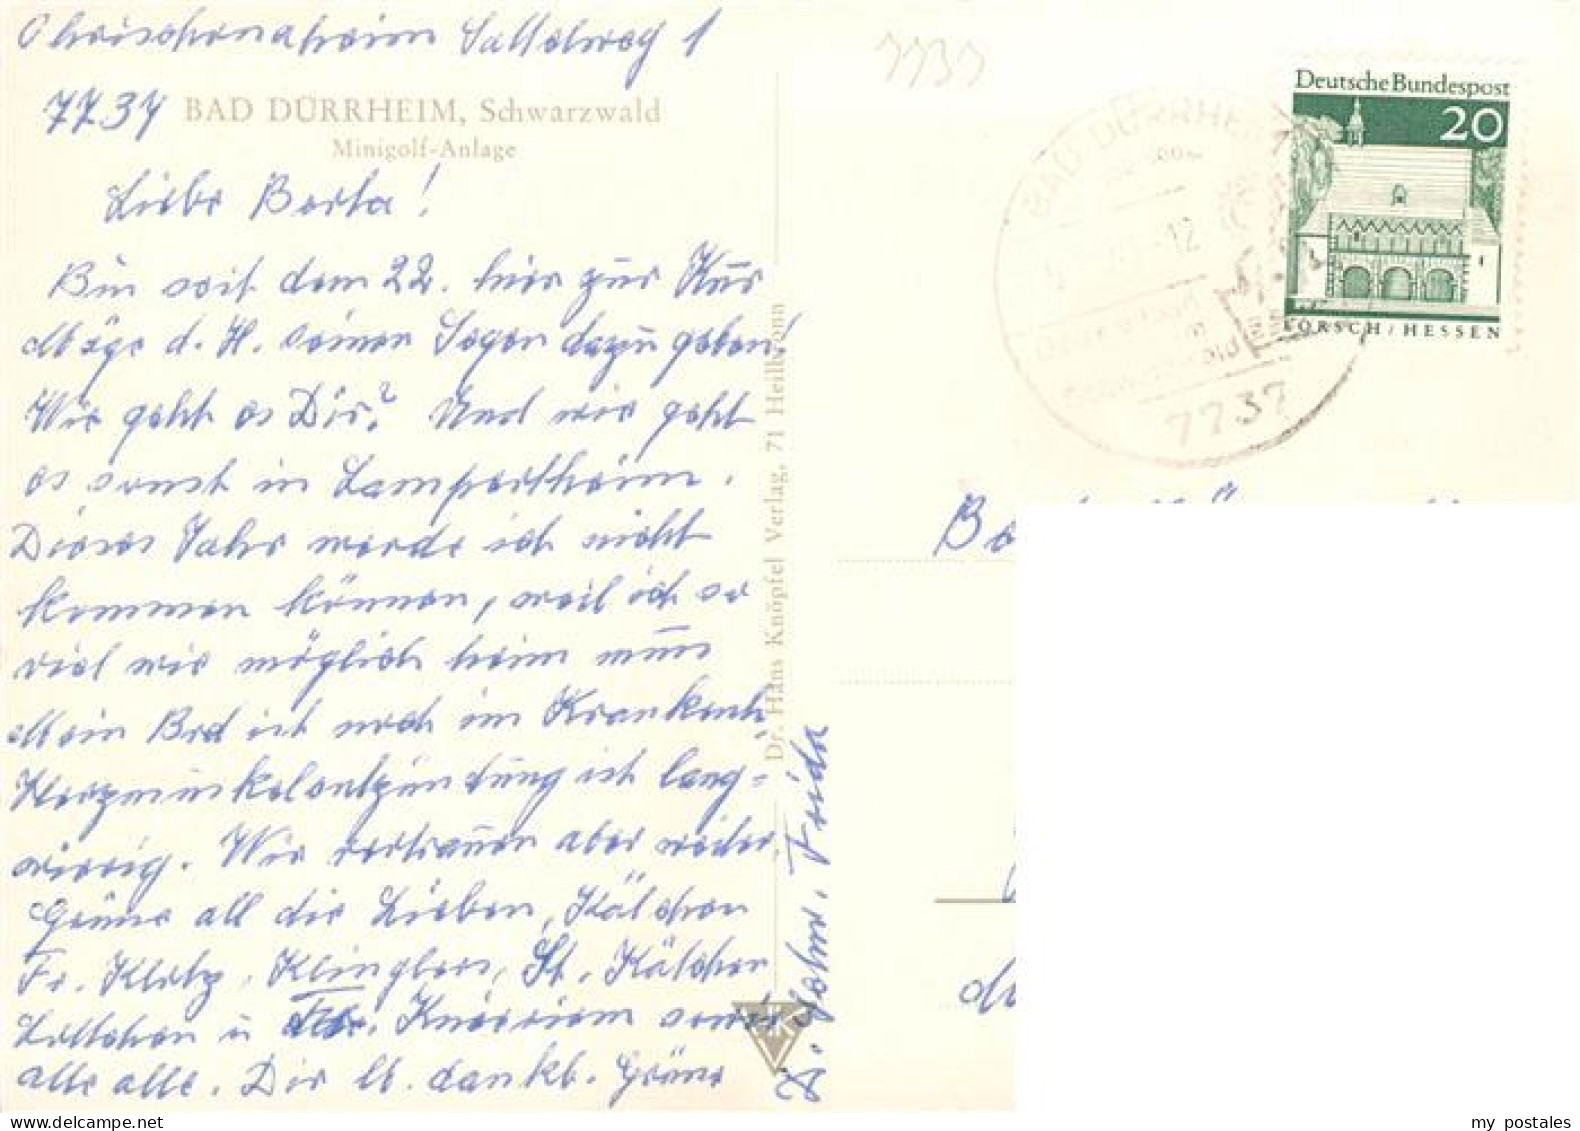 Chrischonaheim Sattelweg 1
7737 BAD DÜRRHEIM, Schwarzwald
Minigolf-Anlage
Liebe Berta!
Bin seit dem 22. hier zur Kur
Möge d. H. seinen Segen dazu geben!
Wie geht es Dir? Und wie geht
es sonst in Lampertheim.
Dieses Jahr werde ich nicht
kommen können, weil ich so
viel wie möglich heim muss
Mein ist noch im Krankenh
Herzmuskelentzündung ist lang-
wierig. Wir vertrauen aber weiter.
Grüsse all die Lieben, Kätchen
Fr. Klotz, Klinglers, St. Kätchen
u Fr. Knierriem sowie
alle alle. Dir lb. dankb. Grüsse
D. Schw. Frida
Dr. Hans Knöpfel Verlag, 71 Heilbronn
7737
BAD DÜRRHEIM
-12
7737
Deutsche Bundespost
20
LORSCH/HESSEN
my postales